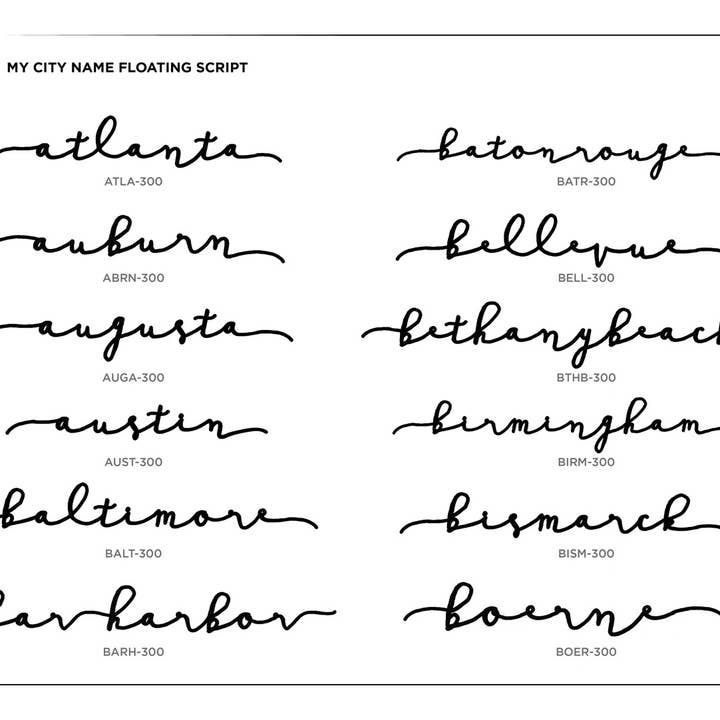 MY CITY NAME FLOATING SCRIPT
atlanta
ATLA-300
auburn
ABRN-300
augusta
AUGA-300
austin
AUST-300
baltimore
BALT-300
bar harbor
BARH-300
baton rouge
BATR-300
bellevue
BELL-300
bethany beach
BTHB-300
birmingham
BIRM-300
bismarck
BISM-300
boerne
BOER-300